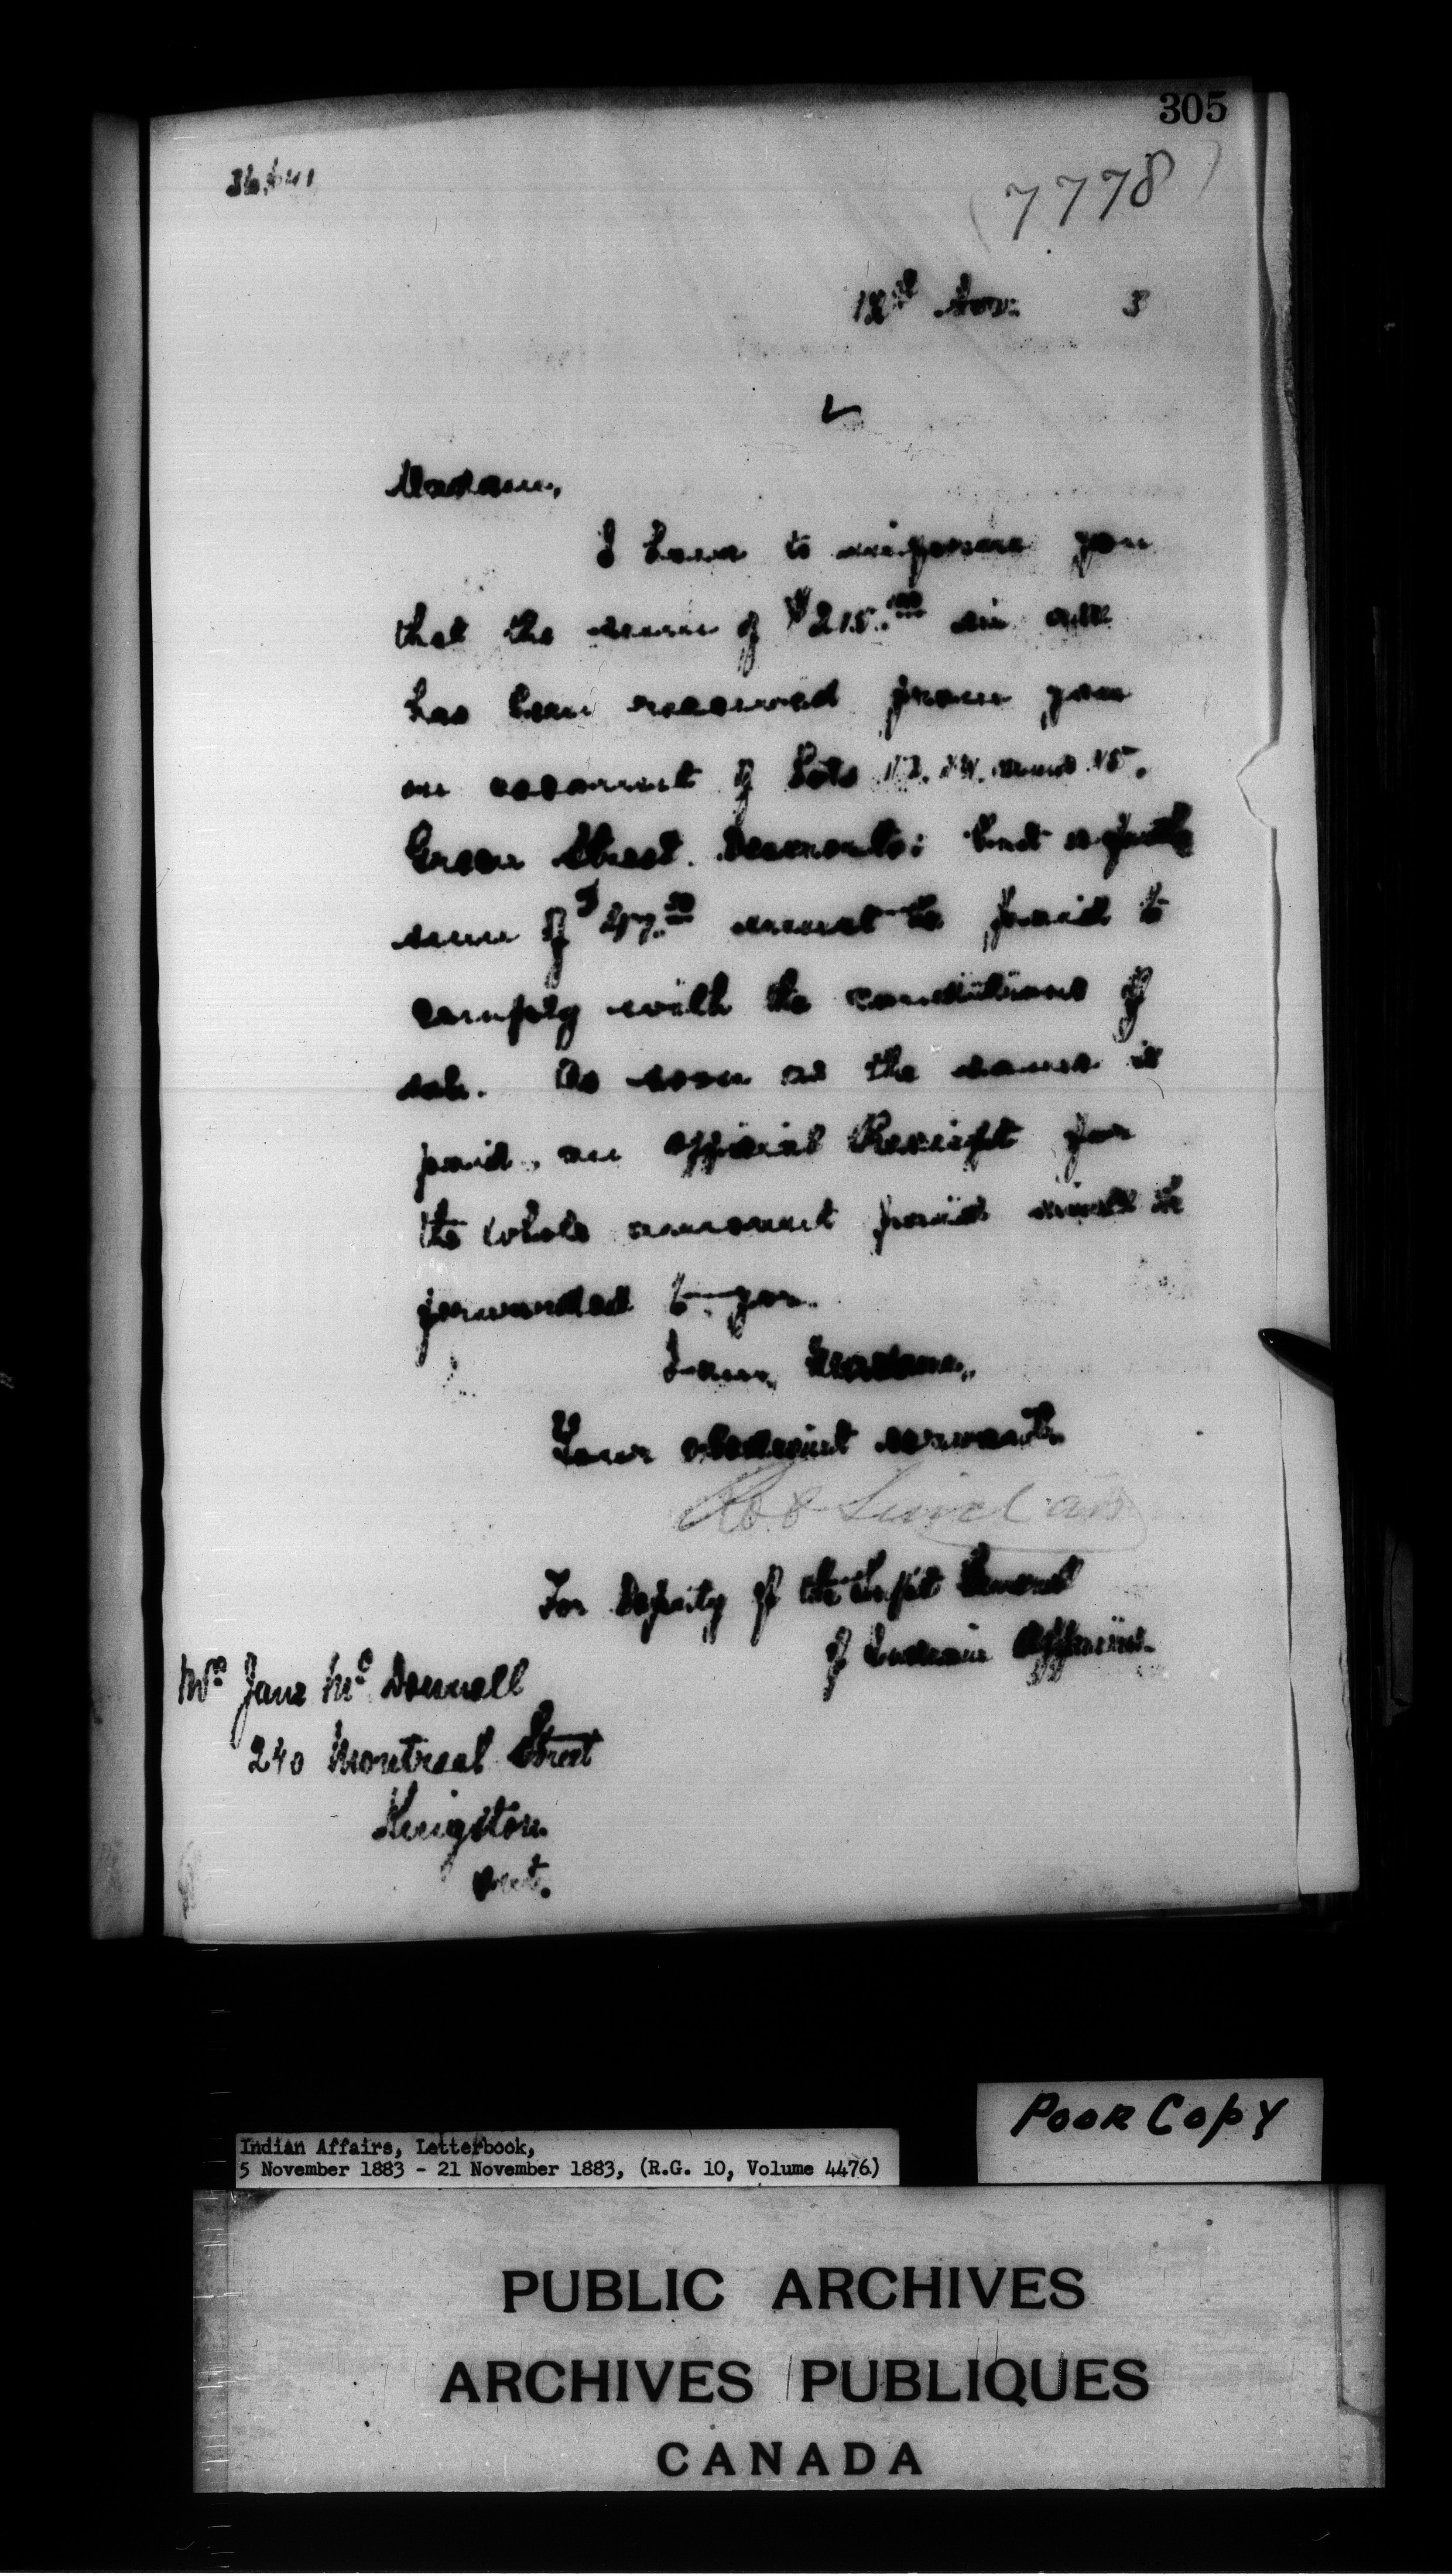 305
7778
Nov: 3
Madam,
I have to inform you
that the sum of $215.00 in all
has been received from you
on account of Lots 13, 14, and 15,
Green Street. Deseronto: but a further
sum of $ must be paid to
comply with the conditions of
sale. As soon as the same is
paid, an official Receipt for
the whole amount paid will be
forwarded to you.
I am, Madam,
Your obedient servant.
Rob Sinclair
For Deputy of the Supt General
of Indian Affairs.
Mrs Jane McDonnell
240 Montreal Street
Kingston
Ont.
Poor Copy
Indian Affairs, Letterbook,
5 November 1883 - 21 November 1883, (R.G. 10, Volume 4476)
PUBLIC ARCHIVES
ARCHIVES PUBLIQUES
CANADA